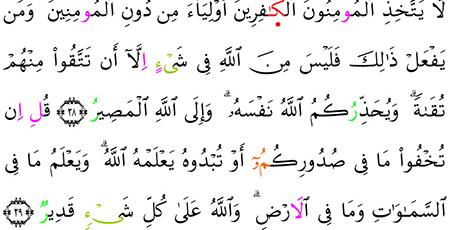 لَا يَتَّخِذِ الۡمُومِنُونَ الۡكٰفِرِينَ أَوۡلِيَآءَ مِن دُونِ الۡمُومِنِينَ ۖ وَمَن
يَفۡعَلۡ ذَٰلِكَ فَلَيۡسَ مِنَ اللَّهِ فِى شَىۡءٍ اِلَّآ أَن تَتَّقُواْ مِنۡهُمۡ
تُقَىٰةً ۗ وَيُحَذِّرُكُمُ اللَّهُ نَفۡسَهُۥ ۗ وَإِلَى اللَّهِ الۡمَصِيرُ ۝٢٨ قُلِ اِن
تُخۡفُواْ مَا فِى صُدُورِكُمُۥٓ أَوۡ تُبۡدُوهُ يَعۡلَمۡهُ اللَّهُ ۗ وَيَعۡلَمُ مَا فِى
السَّمَٰوَٰتِ وَمَا فِى الَارۡضِ ۗ وَاللَّهُ عَلَىٰ كُلِّ شَىۡءٍ قَدِيرٌ ۝٢٩